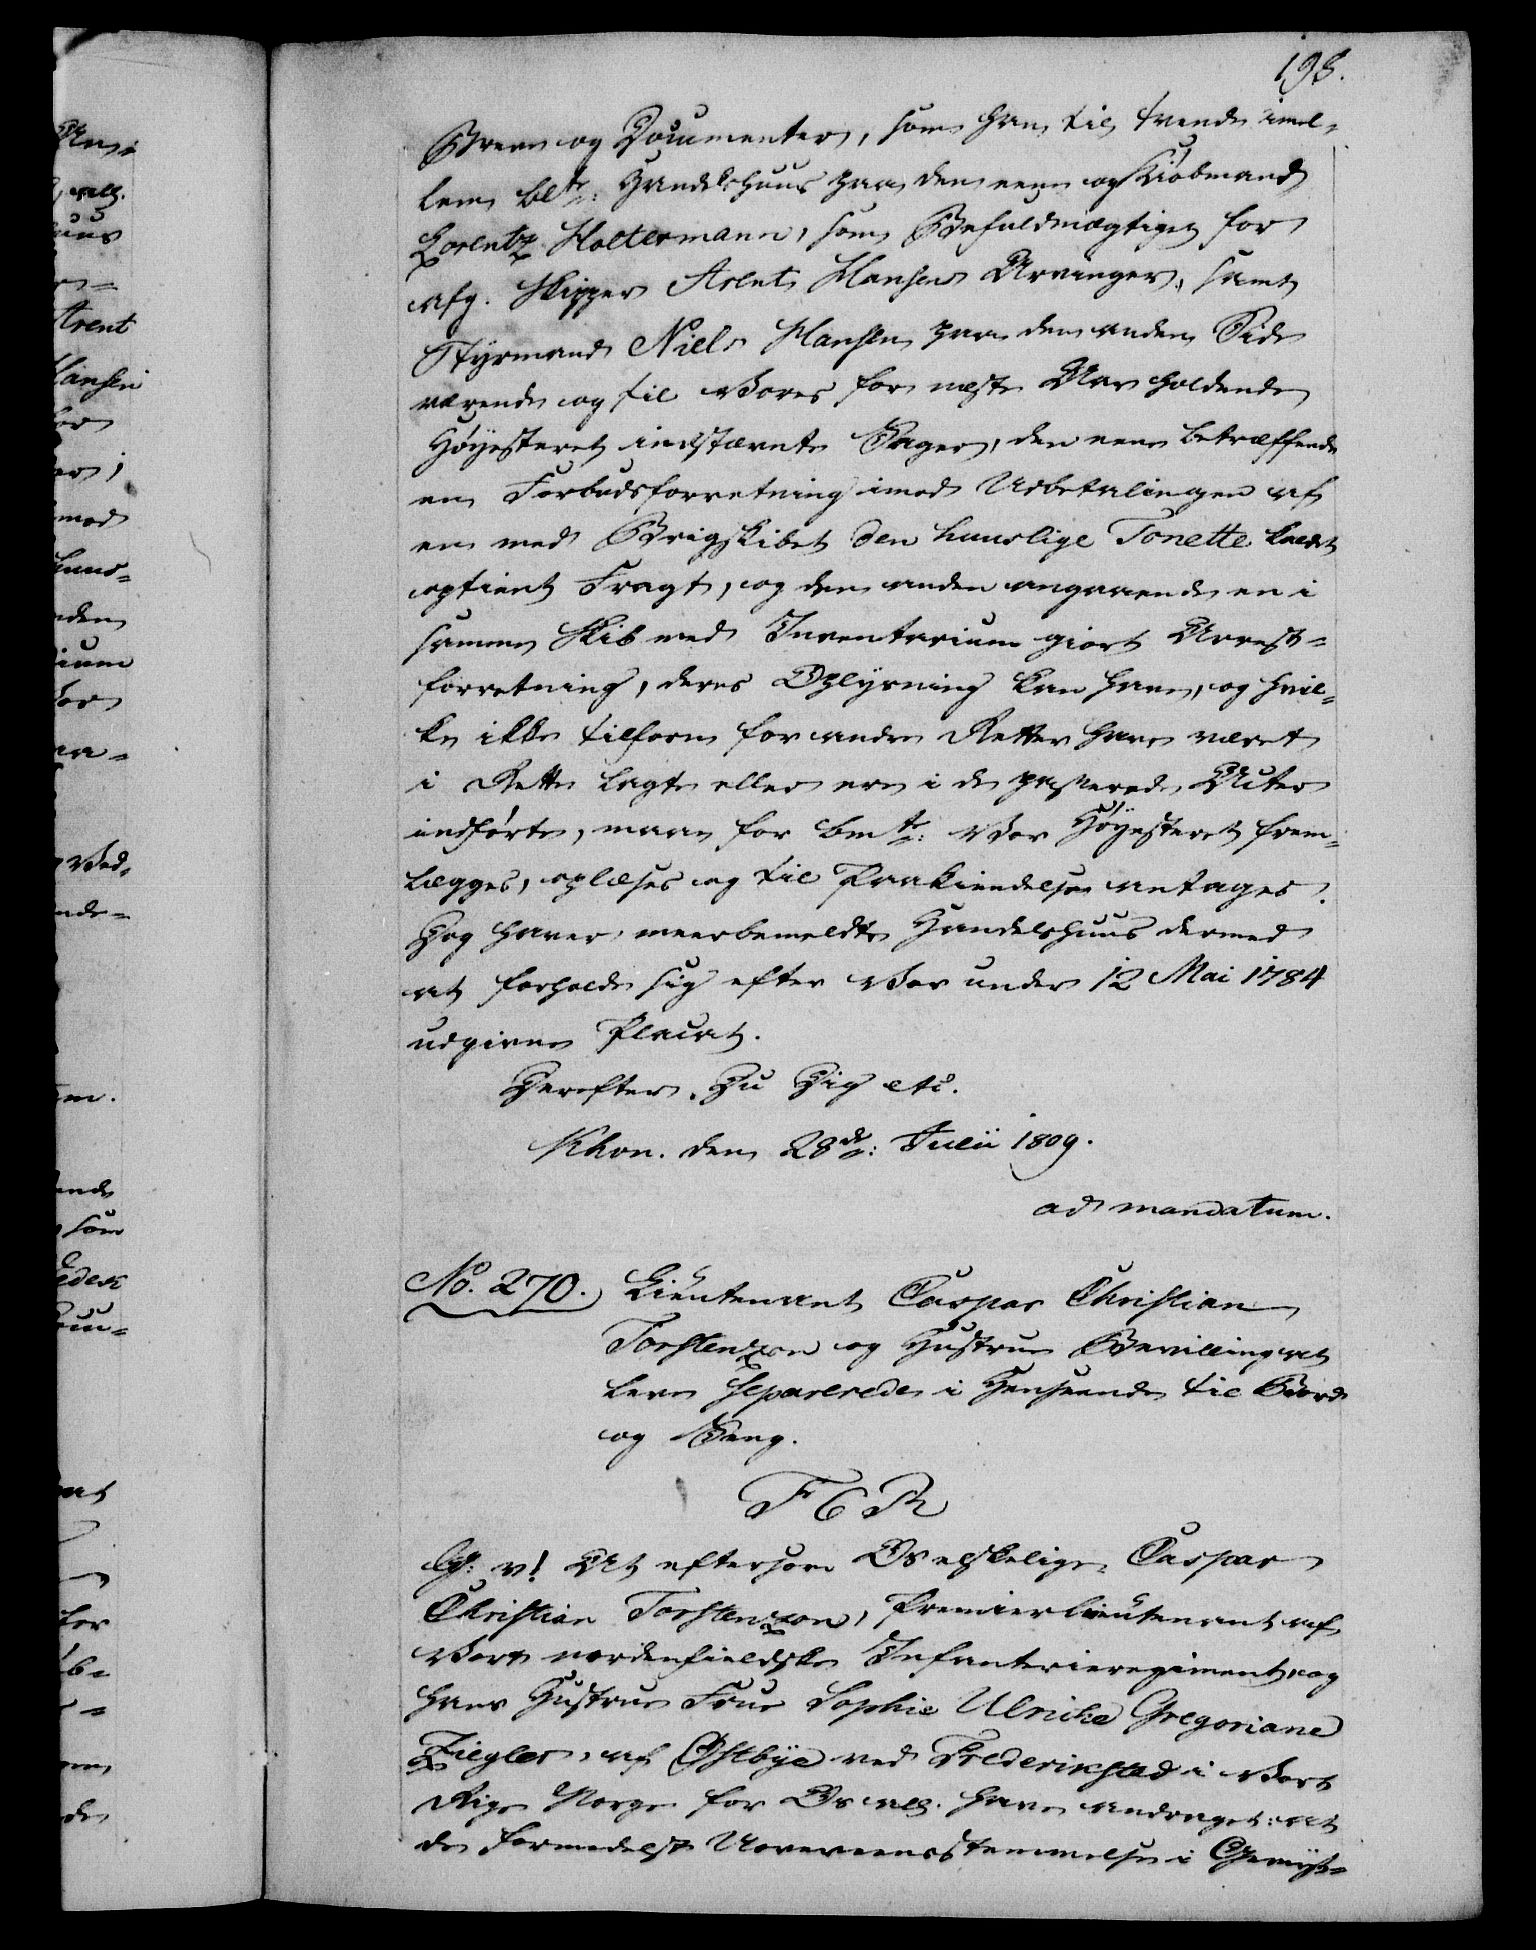 198.
Breve og Documenter, som han til tvende imel-
lem bltr: Handelshuus paa den eene og Kiøbmand
Lorentz Holtermann, som Befuldmægtiget for
afg. Skipper Arent Hansens Arvinger, samt
Styrmand Niels Hansen paa den anden Side
værende og til Vores for næste Aar holdende
Høyesteret indstævnte Sager, den eene betræffende
en Forbudsforretning imod Udbetalingen af
en med Brigskibet den huuslige Tonette kaldet
optient Fragt, og den anden angaaende en i
samme Skib med Inventarium giort Arrest-
forretning, deres Oplysning kan have, og hvil-
ke ikke tilforn for andre Retter have været
i Rette lagte eller ere i de passerede Acter
indførte, maae for bmte: Vor Høyesteret frem-
lægges, oplæses og til Paakiendelse antages.
Dog haver meerbemeldte Handelshuus dermed
at forholde sig efter Vor under 12 Mai 1784
udgivne Placat.
Derefter. Du Dig etc.
Khvn. den 28de: Julii 1809.
ad mandatum.
No. 270. Lieutenant Caspar Christian
Torstenzon og Hustrue Bevilling at
leve separerede i Henseende til Bord
og Seng.
F6R
G: v! At eftersom Os elskelige Caspar
Christian Torstenzon, Premierlieutenant af
Vort nordenfieldske Infanterieregiment, og
hans Hustrue Frue Sophie Ulriche Gregoriane
Ziegler, af Østbye ved Frederikstad i Vort
Rige Norge for Os all. have andraget: at
de formedelst Uovereensstemmelse i Gemyt-